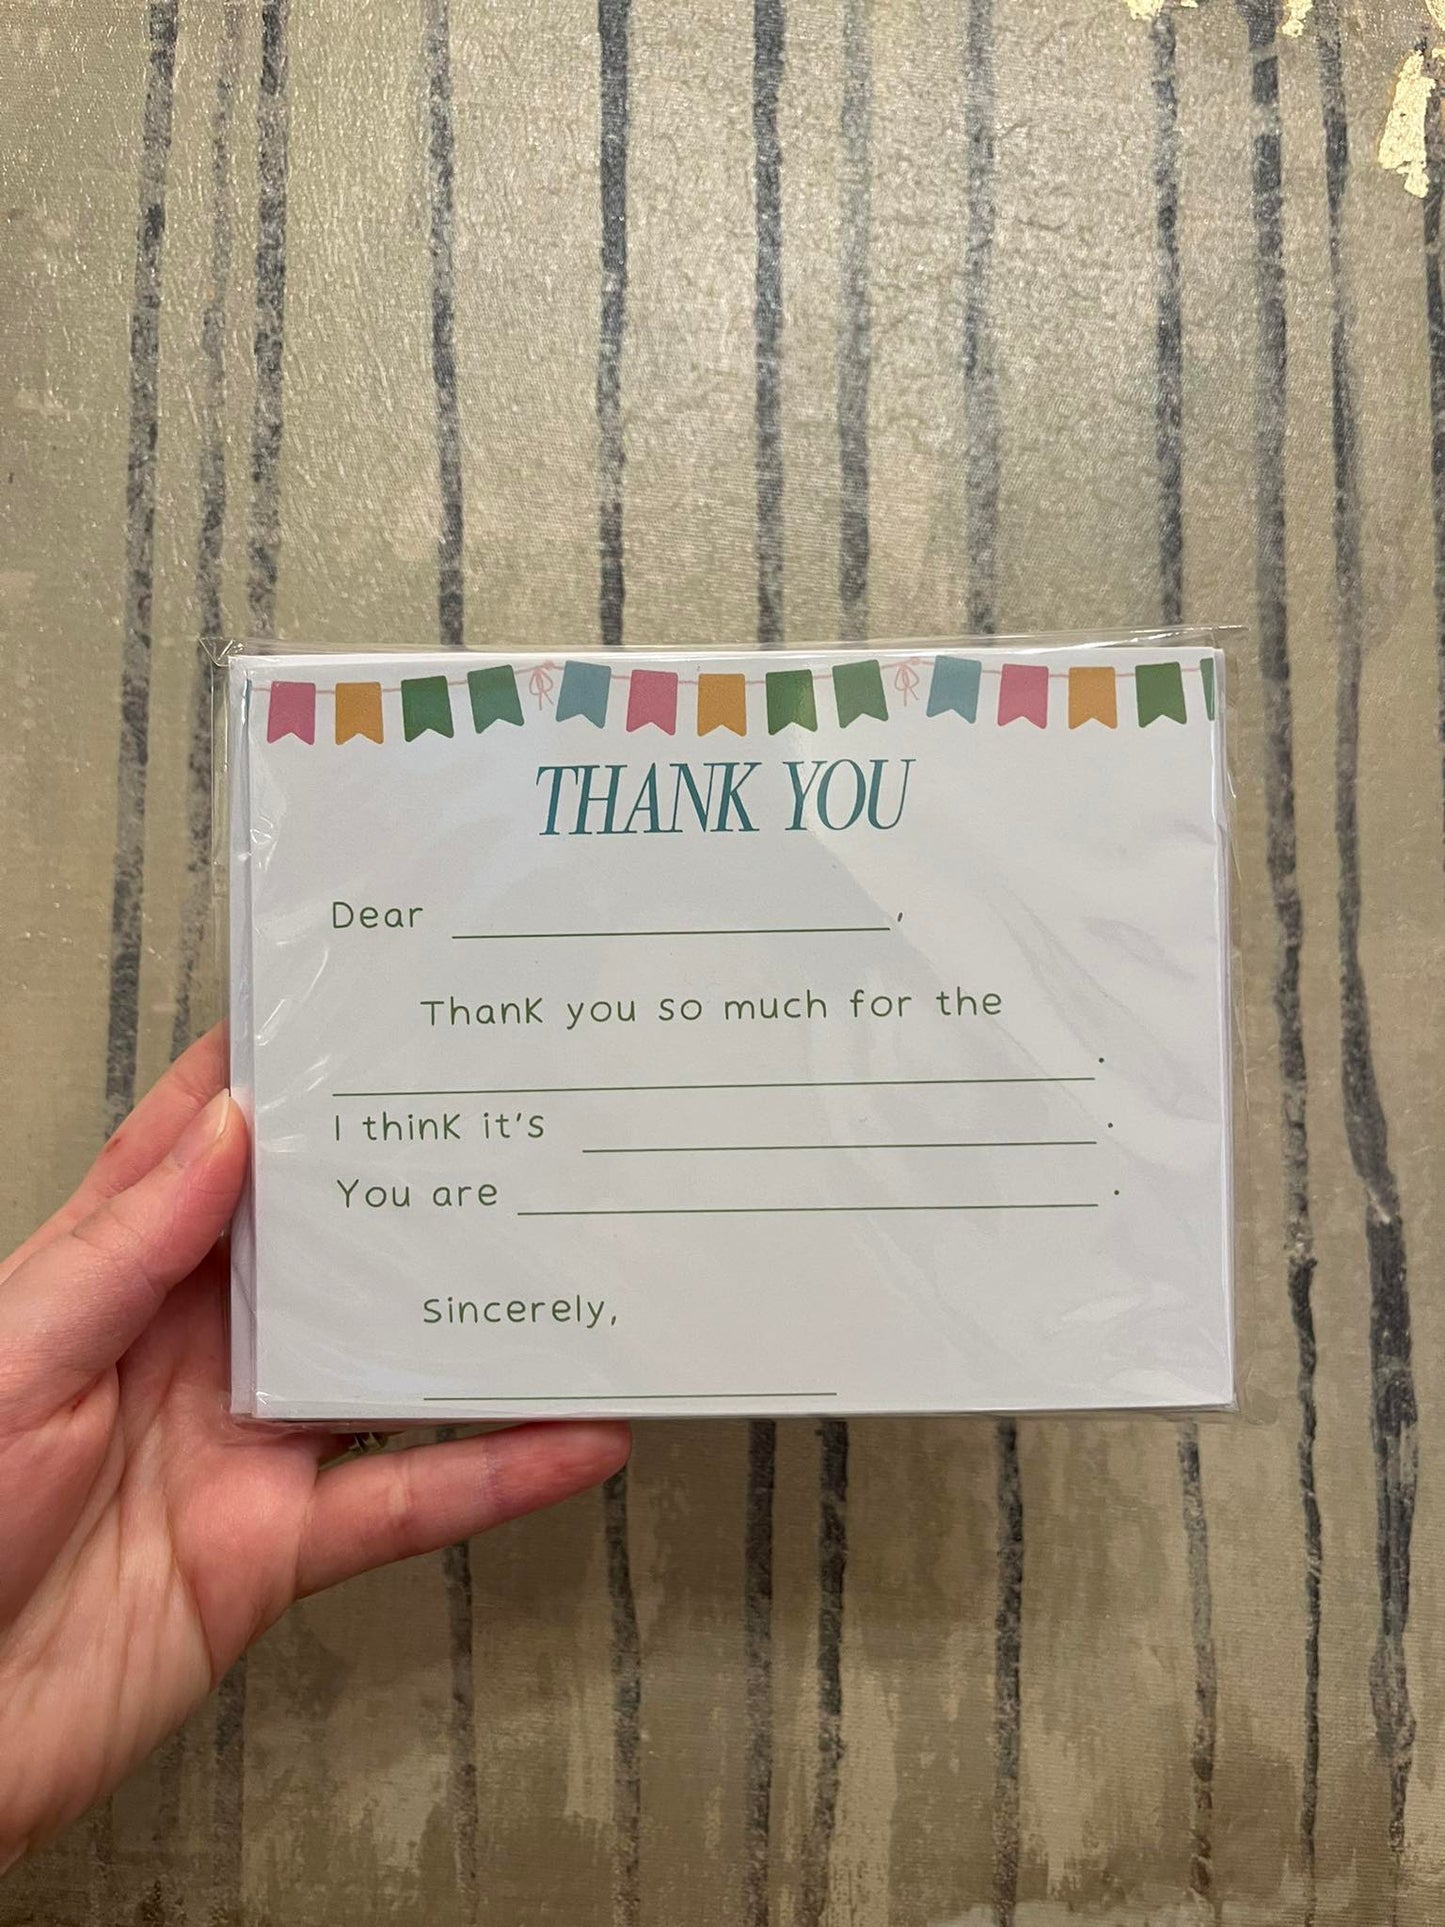 THANK YOU
Dear ____________________,
Thank you so much for the
____________________.
I think it's ____________________.
You are ____________________.
Sincerely,
____________________